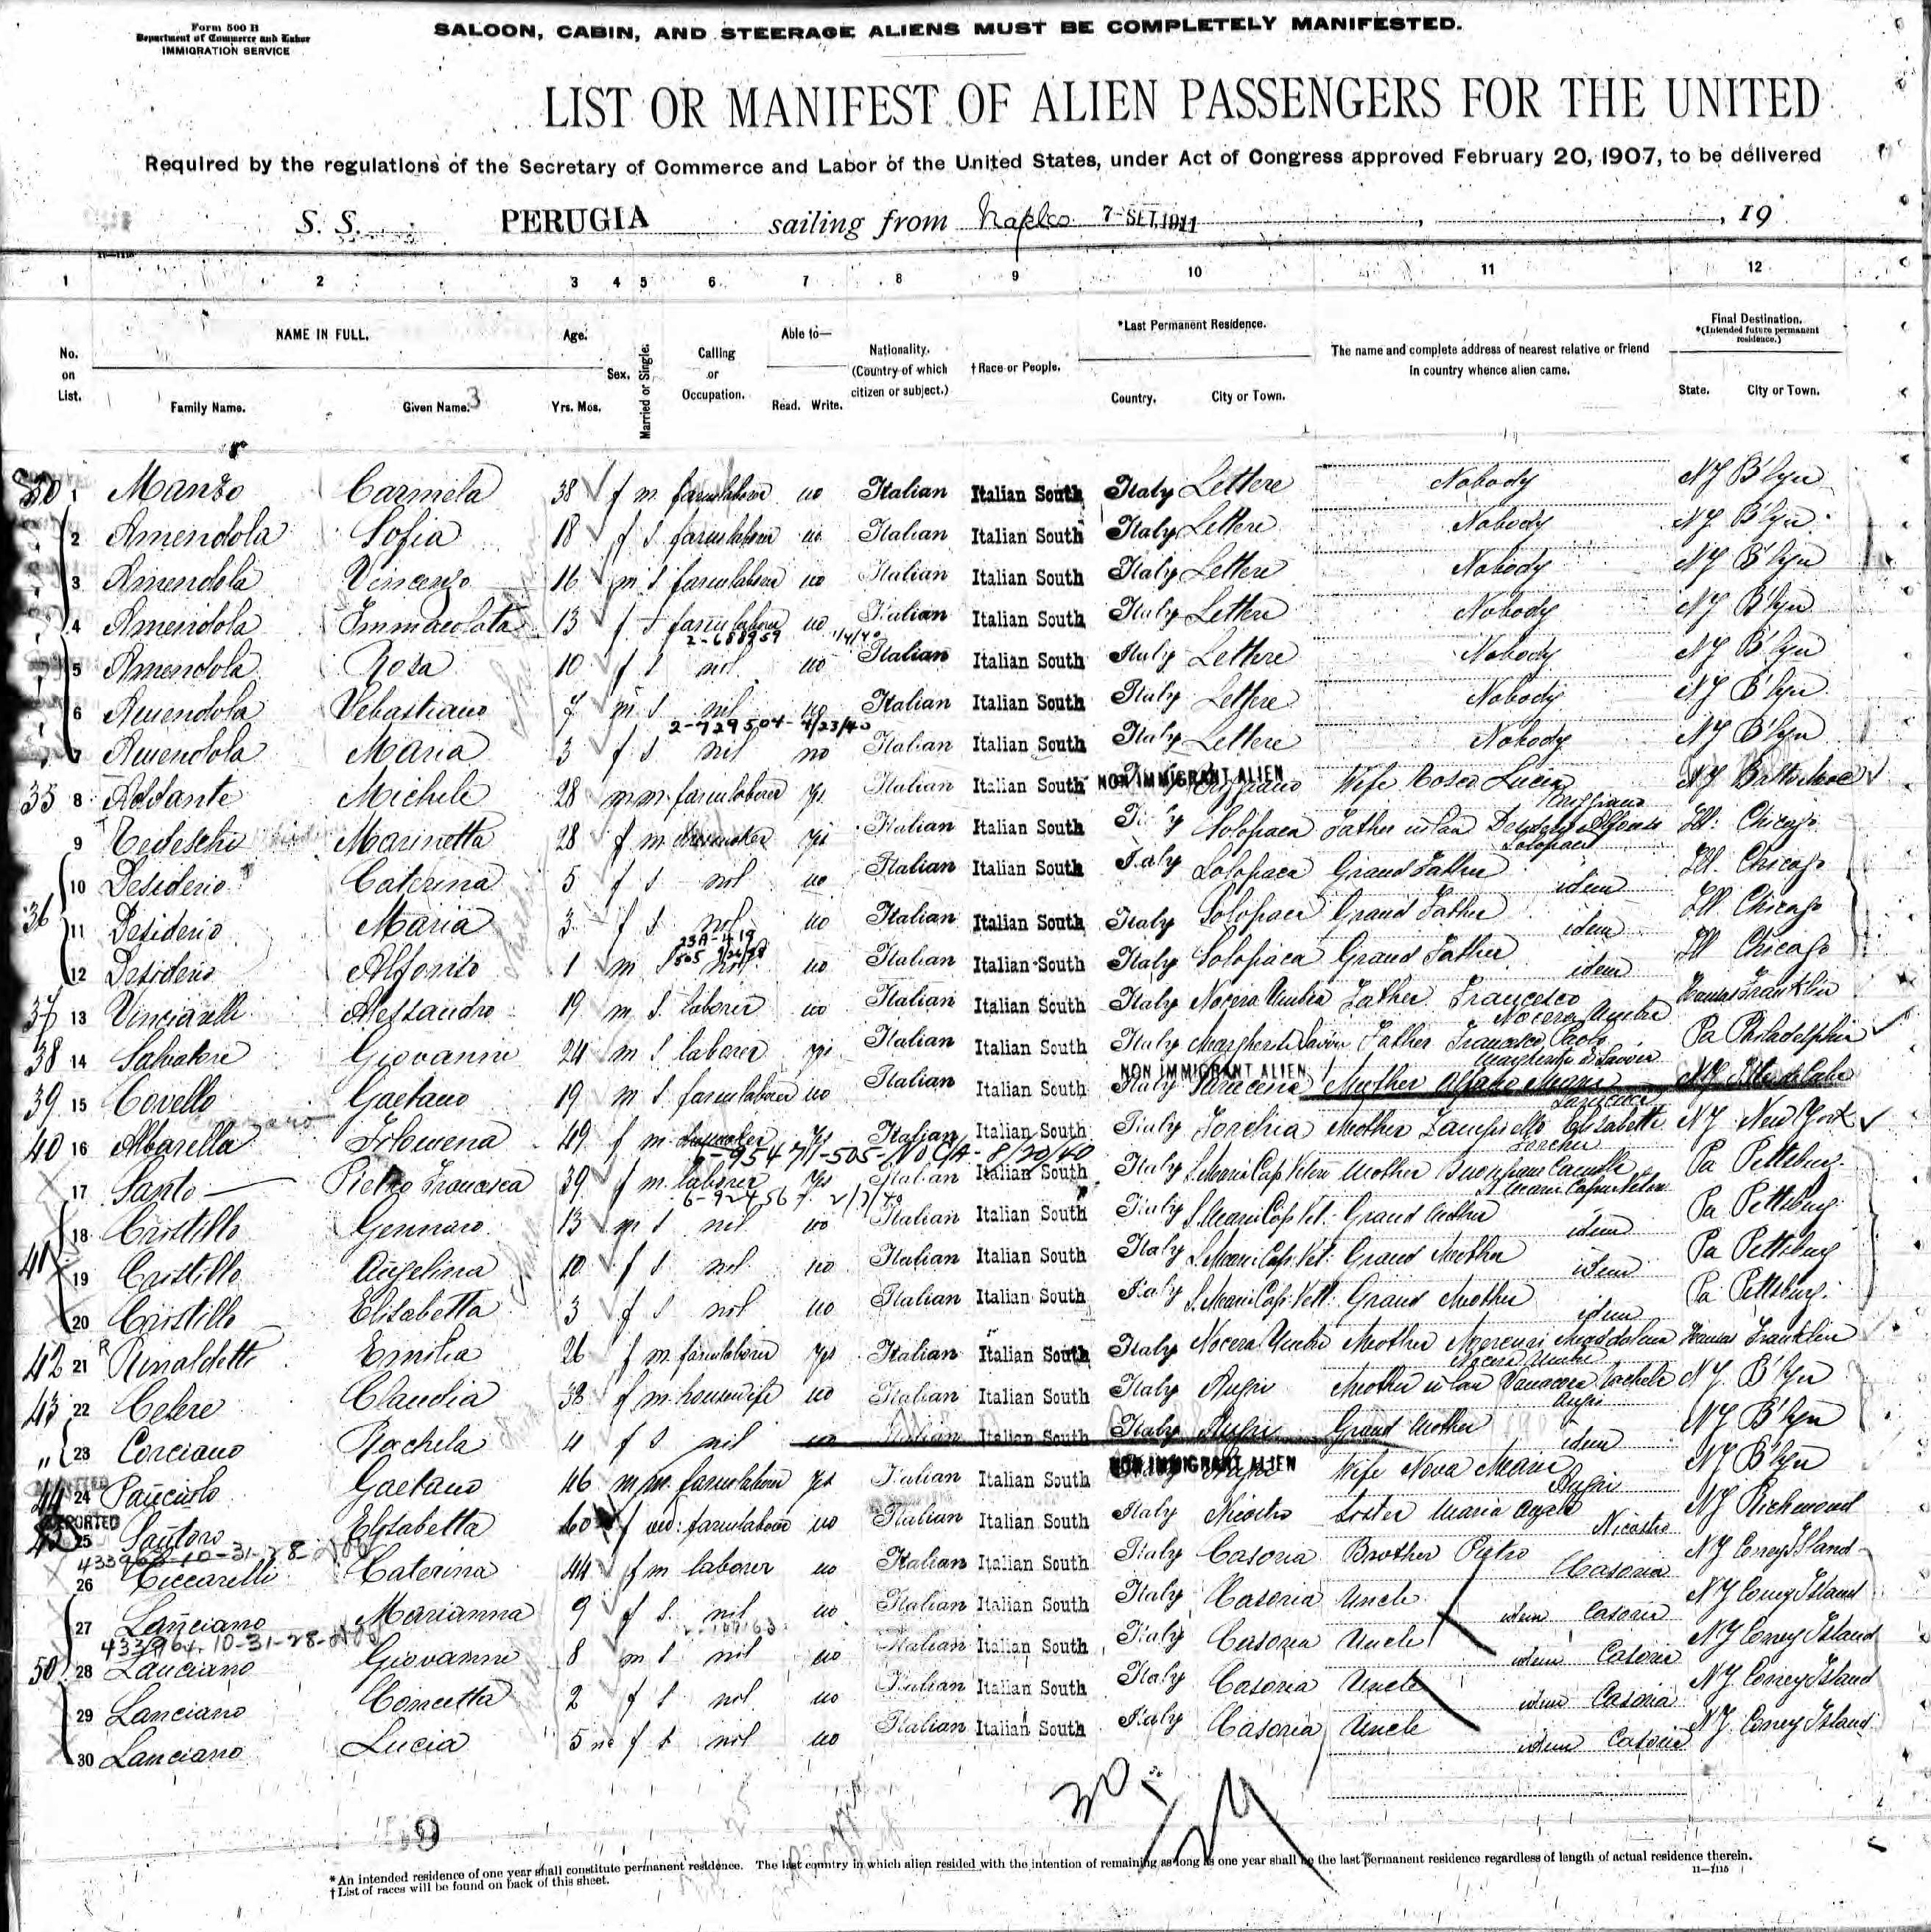 Form 500 B
Department of Commerce and Labor
IMMIGRATION SERVICE
SALOON, CABIN, AND STEERAGE ALIENS MUST BE COMPLETELY MANIFESTED.
LIST OR MANIFEST OF ALIEN PASSENGERS FOR THE UNITED
Required by the regulations of the Secretary of Commerce and Labor of the United States, under Act of Congress approved February 20, 1907, to be delivered
S. S. PERUGIA sailing from Naples 7-SET.1911 , , 19
1 2 3 4 5 6. 7 8 9 10 11 12
No. on List. NAME IN FULL. Family Name. Given Name. 3 Age. Yrs. Mos. Sex. Married or Single. Calling or Occupation. Able to— Read. Write. Nationality. (Country of which citizen or subject.) †Race or People. *Last Permanent Residence. Country. City or Town. The name and complete address of nearest relative or friend in country whence alien came. Final Destination. *(Intended future permanent residence.) State. City or Town.
1 Manzo Carmela 38 f m farmlaborer no Italian Italian South Italy Lettere Nobody NY B'lyn
2 Amendola Sofia 18 f s farmlaborer no Italian Italian South Italy Lettere Nobody NY B'lyn
3 Amendola Vincenzo 16 m s farmlaborer no Italian Italian South Italy Lettere Nobody NY B'lyn
4 Amendola Immacolata 13 f s farmlaborer no Italian Italian South Italy Lettere Nobody NY B'lyn
2-688959
5 Amendola Rosa 10 f s nil no Italian Italian South Italy Lettere Nobody NY B'lyn
6 Amendola Sebastiano 7 m s nil no Italian Italian South Italy Lettere Nobody NY B'lyn
2-729504- 4/23/40
7 Amendola Maria 3 f s nil no Italian Italian South Italy Lettere Nobody NY B'lyn
NON IMMIGRANT ALIEN
35 8 Michele 28 m m farmlaborer yes Italian Italian South Wife Lucia NY
9 Tedeschi Marinetta 28 f m yes Italian Italian South Italy Solopaca Father in law Alfonso Ill. Chicago
Solopaca
10 Desiderio Caterina 5 f s nil no Italian Italian South Italy Solopaca Grand Father idem Ill. Chicago
36 11 Desiderio Maria 3 f s nil no Italian Italian South Italy Solopaca Grand Father idem Ill Chicago
12 Desiderio Alfonso 1 m s nil no Italian Italian South Italy Solopaca Grand Father idem Ill Chicago
37 13 Vinciarelli Alessandro 19 m s. laborer no Italian Italian South Italy Nocera Umbra Father Francesco Franklin
Nocera Umbra
38 14 Salvatore Giovanni 24 m s laborer yes Italian Italian South Italy Father Francesco Paolo Pa Philadelphia
NON IMMIGRANT ALIEN
39 15 Covello Gaetano 19 m s farmlaborer no Italian Italian South Italy Saracena Mother
40 16 Albarella Filomena 49 f m yes Italian Italian South Italy Torchia Mother Elisabetta NY New York
17 Santo Francesca 39 f m laborer yes Italian Italian South Italy S. Maria Cap Vetere Mother Pa Pittsburg
18 Cristillo Gennaro 13 m s nil no Italian Italian South Italy S. Maria Cap. Vet. Grand Mother idem Pa Pittsburg
41 19 Cristillo Angelina 10 f s nil no Italian Italian South Italy S. Maria Cap. Vet. Grand Mother idem Pa Pittsburg
20 Cristillo Elisabetta 3 f s nil no Italian Italian South Italy S. Maria Cap. Vett. Grand Mother idem Pa Pittsburg.
42 21 Rinaldetti Emilia 26 f m farmlaborer yes Italian Italian South Italy Nocera Umbra Mother Maddalena Franklin
Nocera Umbra
43 22 Celere Claudia 38 f m housewife no Italian Italian South Italy Angri Mother in law Rachela NY. B'lyn
Angri
" 23 Corciano Rachela 4 f s nil no Italian Italian South Italy Angri Grand Mother idem NY B'lyn
NON IMMIGRANT ALIEN
44 24 Gaetano 46 m m. farmlaborer yes Italian Italian South Italy Angri Wife Nova Maria NY B'lyn
Angri
DEPORTED
25 Santoro Elisabetta 60 f wd: farmlaborer no Italian Italian South Italy Nicastro Sister Maria NY Richmond
Nicastro
26 Ciccarelli Caterina 44 f m laborer no Italian Italian South Italy Casoria Brother Pietro Casoria NY Coney Island
27 Lanciano Marianna 9 f s. nil no Italian Italian South Italy Casoria Uncle idem Casoria NY Coney Island
50 28 Lanciano Giovanni 8 m s nil no Italian Italian South Italy Casoria Uncle idem Casoria NY Coney Island
29 Lanciano Concetta 2 f s nil no Italian Italian South Italy Casoria Uncle idem Casoria NY. Coney Island
30 Lanciano Lucia 5 f s nil no Italian Italian South Italy Casoria Uncle idem Casoria NY. Coney Island
*An intended residence of one year shall constitute permanent residence. The last country in which alien resided with the intention of remaining as long as one year shall be the last permanent residence regardless of length of actual residence therein.
†List of races will be found on back of this sheet.
11—1115